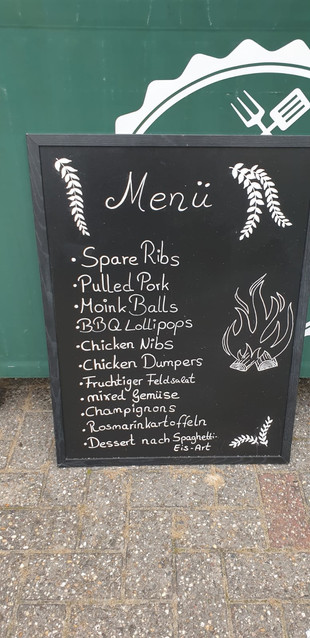 Menü
• Spare Ribs
• Pulled Pork
• Moink Balls
• BBQ Lollipops
• Chicken Nibs
• Chicken Dumpers
• Fruchtiger Feldsalat
• mixed Gemüse
• Champignons
• Rosmarinkartoffeln
• Dessert nach Spaghetti-
Eis-Art